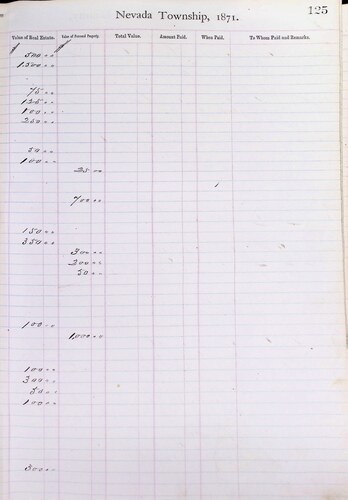 125
Nevada Township, 1871.
Value of Real Estate. Value of Personal Property. Total Value. Amount Paid. When Paid. To Whom Paid and Remarks.
500 00
1.500 00
75 00
125 00
100 00
250 00
50 00
100 00
25 00
700 00
150 00
350 00
300 00
200 00
50 00
100 00
1,000 00
100 00
300 00
50 00
100 00
300 00